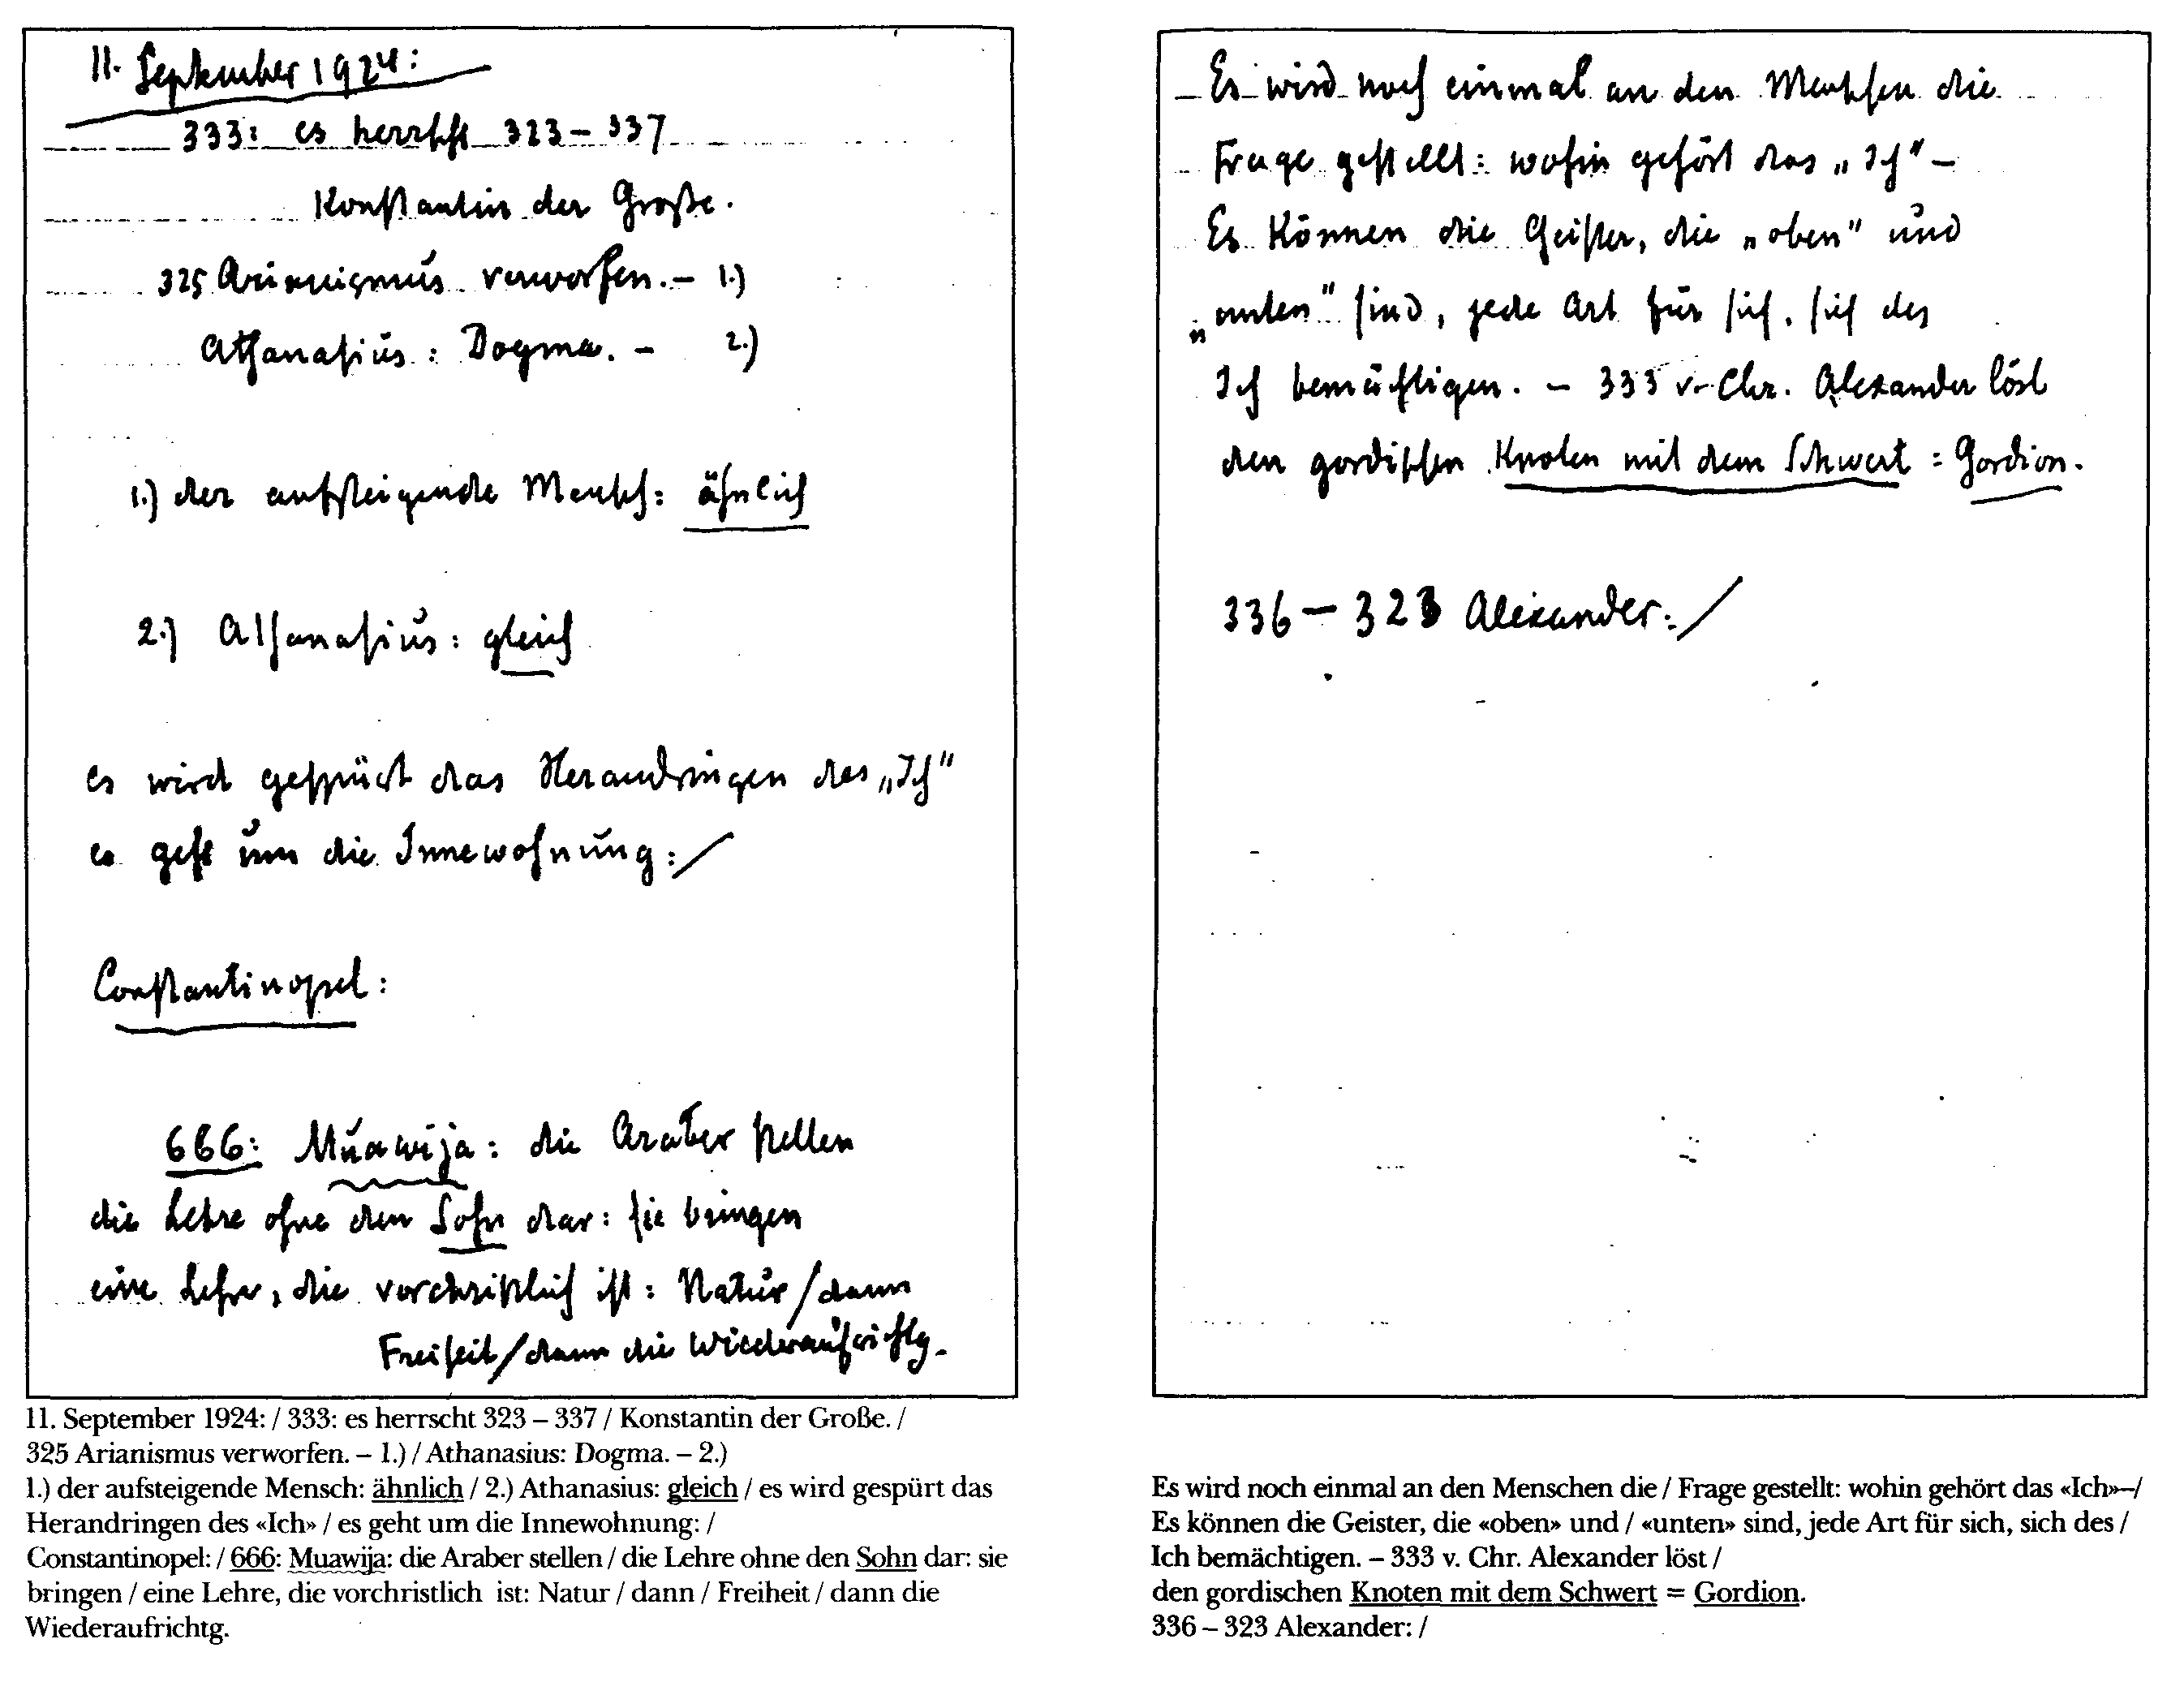 11. September 1924:
333: es herrscht 323 – 337
Konstantin der Große.
325 Arianismus verworfen. – 1.)
Athanasius: Dogma. – 2.)
1.) der aufsteigende Mensch: ähnlich
2.) Athanasius: gleich
es wird gespürt das Herandringen des „Ich"
es geht um die Innewohnung: /
Constantinopel:
666: Muawija: die Araber stellen
die Lehre ohne den Sohn dar: sie bringen
eine Lehre, die vorchristlich ist: Natur / dann
Freiheit / dann die Wiederaufrichtg.
11. September 1924: / 333: es herrscht 323 – 337 / Konstantin der Große. /
325 Arianismus verworfen. – 1.) / Athanasius: Dogma. – 2.)
1.) der aufsteigende Mensch: ähnlich / 2.) Athanasius: gleich / es wird gespürt das
Herandringen des «Ich» / es geht um die Innewohnung: /
Constantinopel: / 666: Muawija: die Araber stellen / die Lehre ohne den Sohn dar: sie
bringen / eine Lehre, die vorchristlich ist: Natur / dann / Freiheit / dann die
Wiederaufrichtg.
Es wird noch einmal an den Menschen die
Frage gestellt: wohin gehört das „Ich" –
Es können die Geister, die „oben" und
„unten" sind, jede Art für sich, sich des
Ich bemächtigen. – 333 v. Chr. Alexander löst
den gordischen Knoten mit dem Schwert = Gordion.
336 – 323 Alexander: /
Es wird noch einmal an den Menschen die / Frage gestellt: wohin gehört das «Ich»–/
Es können die Geister, die «oben» und / «unten» sind, jede Art für sich, sich des /
Ich bemächtigen. – 333 v. Chr. Alexander löst /
den gordischen Knoten mit dem Schwert = Gordion.
336 – 323 Alexander: /